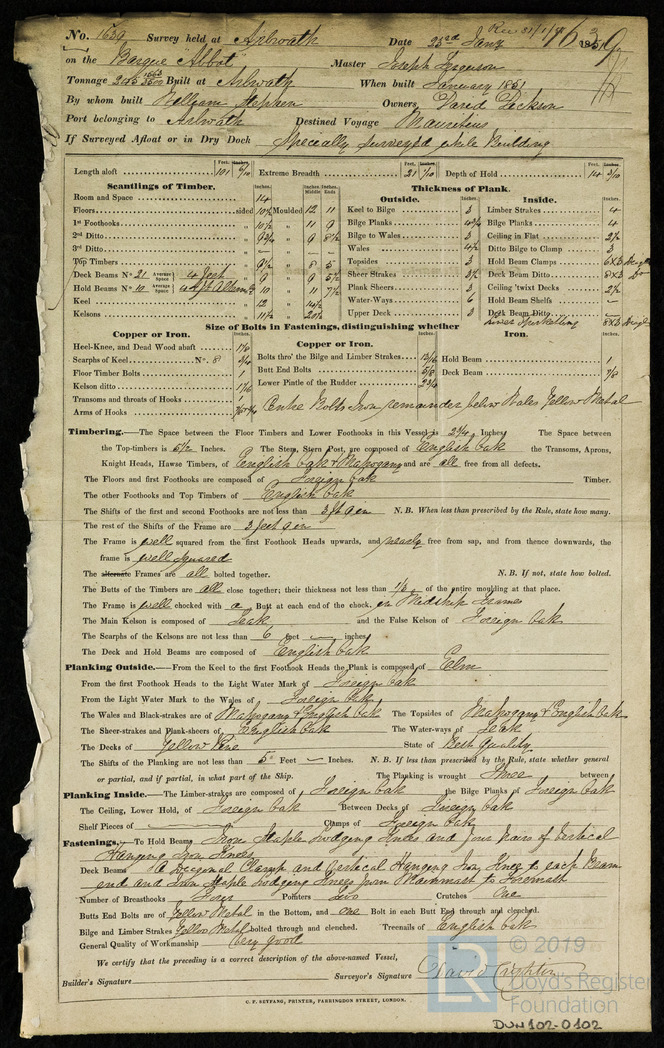 No. 1639 Survey held at Arbroath Date 23rd Jany 1851
on the Barque "Abbot" Master Joseph Ferguson
Tonnage Built at Arbroath When built January 1851
By whom built William Stephen Owners David Dickson
Port belonging to Arbroath Destined Voyage Mauritius
If Surveyed Afloat or in Dry Dock Specially Surveyed while Building
Length aloft 101 6/10 Extreme Breadth 21 7/10 Depth of Hold 14 3/10
Scantlings of Timber.
Room and Space 14
Floors sided 10½ Moulded 12 11
1st Foothooks 10½ 11 9
2nd Ditto 9¾ 9 8½
3rd Ditto
Top Timbers 9½ 8 5
Deck Beams No. 21 Average Space 4 feet 9 9 5½
Hold Beams No. 10 Average Space 10 11 7½
Keel 12 14½
Kelsons 11½ 20½
Thickness of Plank.
Outside.
Keel to Bilge 3
Bilge Planks 4¾
Bilge to Wales 3
Wales 4½
Topsides 3
Sheer Strakes 3½
Plank Sheers 3
Water-Ways 6
Upper Deck 3
Inside.
Limber Strakes 4
Bilge Planks 4
Ceiling in Flat 2½
Ditto Bilge to Clamp 3
Hold Beam Clamps 6x3
Deck Beam Ditto 8x3 Do
Ceiling 'twixt Decks 2½
Hold Beam Shelfs —
Deck Beam Ditto —
Lower Spirketting 8x3
Size of Bolts in Fastenings, distinguishing whether
Copper or Iron.
Heel-Knee, and Dead Wood abaft 1 1/16
Scarphs of Keel No. 8 3/4
Floor Timber Bolts 1
Kelson ditto 1 1/16
Transoms and throats of Hooks 1
Arms of Hooks
Copper or Iron.
Bolts thro' the Bilge and Limber Strakes 13/16
Butt End Bolts 5/8
Lower Pintle of the Rudder 2¾
Iron.
Hold Beam 1
Deck Beam 7/8
Bolts Iron remainder below Wales Yellow Metal
Timbering.—The Space between the Floor Timbers and Lower Foothooks in this Vessel is 2¾ Inches. The Space between
the Top-timbers is 5½ Inches. The Stem, Stern Post, are composed of English Oak the Transoms, Aprons,
Knight Heads, Hawse Timbers, of English Oak & Mahogany and are all free from all defects.
The Floors and first Foothooks are composed of Foreign Oak Timber.
The other Foothooks and Top Timbers of English Oak
The Shifts of the first and second Foothooks are not less than 3 ft 9 in N. B. When less than prescribed by the Rule, state how many.
The rest of the Shifts of the Frame are 3 feet 9 in
The Frame is well squared from the first Foothook Heads upwards, and nearly free from sap, and from thence downwards, the
frame is well squared
The alternate Frames are all bolted together. N. B. If not, state how bolted.
The Butts of the Timbers are all close together; their thickness not less than 1/3 of the entire moulding at that place.
The Frame is well chocked with a Butt at each end of the chock, in Midship Frames
The Main Kelson is composed of Teak and the False Kelson of Foreign Oak
The Scarphs of the Kelsons are not less than 6 feet — inches
The Deck and Hold Beams are composed of English Oak
Planking Outside.—From the Keel to the first Foothook Heads the Plank is composed of Elm
From the first Foothook Heads to the Light Water Mark of Foreign Oak
From the Light Water Mark to the Wales of Foreign Oak
The Wales and Black-strakes are of Mahogany & English Oak The Topsides of Mahogany & English Oak
The Sheer-strakes and Plank-sheers of English Oak The Water-ways of Teak
The Decks of Yellow Pine State of Best Quality
The Shifts of the Planking are not less than 5 Feet — Inches. N. B. If less than prescribed by the Rule, state whether general
or partial, and if partial, in what part of the Ship. The Planking is wrought Three between
Planking Inside.—The Limber-strakes are composed of Foreign Oak the Bilge Planks of Foreign Oak
The Ceiling, Lower Hold, of Foreign Oak Between Decks of Foreign Oak
Shelf Pieces of — Clamps of Foreign Oak
Fastenings.—To Hold Beams Iron Staple Lodging Knees and four Pairs of Vertical
Hanging Iron Knees
Deck Beams Diagonal Clamp and Vertical Hanging Iron Knee to each Beam
end and Iron Staple Lodging Knees from Mainmast to Foremast
Number of Breasthooks Four Pointers Two Crutches One
Butts End Bolts are of Yellow Metal in the Bottom, and one Bolt in each Butt End through and clenched.
Bilge and Limber Strakes Yellow Metal bolted through and clenched. Treenails of English Oak
General Quality of Workmanship Very good
We certify that the preceding is a correct description of the above-named Vessel,
Builder's Signature Surveyor's Signature David Crighton
C. F. SEYFANG, PRINTER, FARRINGDON STREET, LONDON.
LR © 2019
Lloyd's Register
Foundation
DUN102-0102